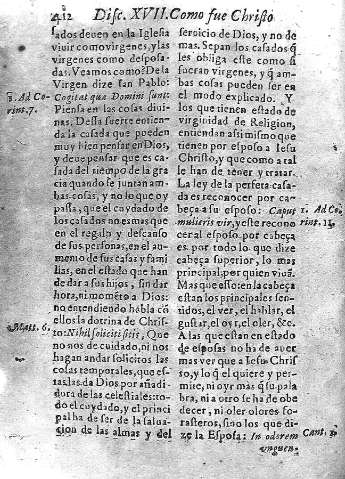 412 Disc. XVII. Como fue Christo
sados deuen en la Iglesia
viuir como virgenes, y las
virgenes como desposa-
das. Veamos como? De la
Virgen dize san Pablo:
1. Ad Co-
rint. 7.
Cogitat quæ Domini sunt:
Piensa en las cosas diui-
nas. Dessa suerte entien-
da la casada que pueden
muy bien pensar en Dios,
y deue pensar que es ca-
sada del tiempo de la gra
cia quando se juntan am-
bas cosas, y no lo que oy
passa, que el cuydado de
los casados no es mas que
en el regalo y descanso
de sus personas, en el au-
mento de sus casas y fami
lias, en el estado que han
de dar a sus hijos, sin dar
hora, ni momẽto a Dios:
no entendiendo habla cõ
ellos la dotrina de Chris-
Matt. 6.
to: Nihil soliciti sitis, Que
no nos de cuidado, ni nos
hagan andar solicitos las
cosas temporales, que es-
tas las da Dios por añadi
dora de las celestiales: to-
do el cuydado, y el princi
pal ha de ser de la salua-
cion de las almas y del
seruicio de Dios, y no de
mas. Sepan los casados q̃
les obliga este como si
fueran virgenes, y q̃ am-
bas cosas pueden ser en
el modo explicado. Y
los que tienen estado de
virginidad de Religion,
entiendan assi mismo que
tienen por esposo a Iesu
Christo, y que como a tal
le han de tener y tratar.
La ley de la perfeta casa-
da es reconocer por ca-
beça a su esposo: Caput
mulieris vir, y este recono
1. Ad Co-
rint. 11.
cer al esposo por cabeça
es por todo lo que dize
cabeça superior, lo mas
principal por quien viuã.
Mas que esso: en la cabeça
estan los principales sen-
tidos, el ver, el hablar, el
gustar, el oyr, el oler, &c.
A las que estan en estado
de esposas no ha de auer
mas ver que a Iesu Chris
to, y lo q̃ el quiere y per-
mite, ni oyr mas q̃ su pala
bra, ni a otro se ha de obe
decer, ni oler olores fo-
rasteros, sino los que di-
ze la Esposa: In odorem
Cant. 1.
vnguen-